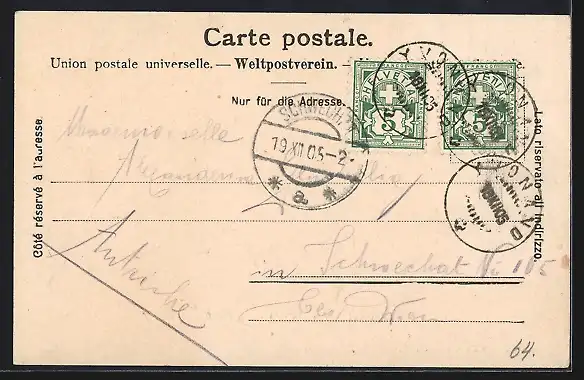 Carte postale.
Union postale universelle. — Weltpostverein. —
Nur für die Adresse.
HELVETIA
5
HELVETIA
5
YVONAND
YVONAND
YVONAND
SCHWECHAT
19 XII 05-2
* a *
Côté réservé à l'adresse.
Lato riservato all indirizzo.
Mademoiselle
Alexandrine
in Schwechat No 105
bei Wien
Autriche
64.